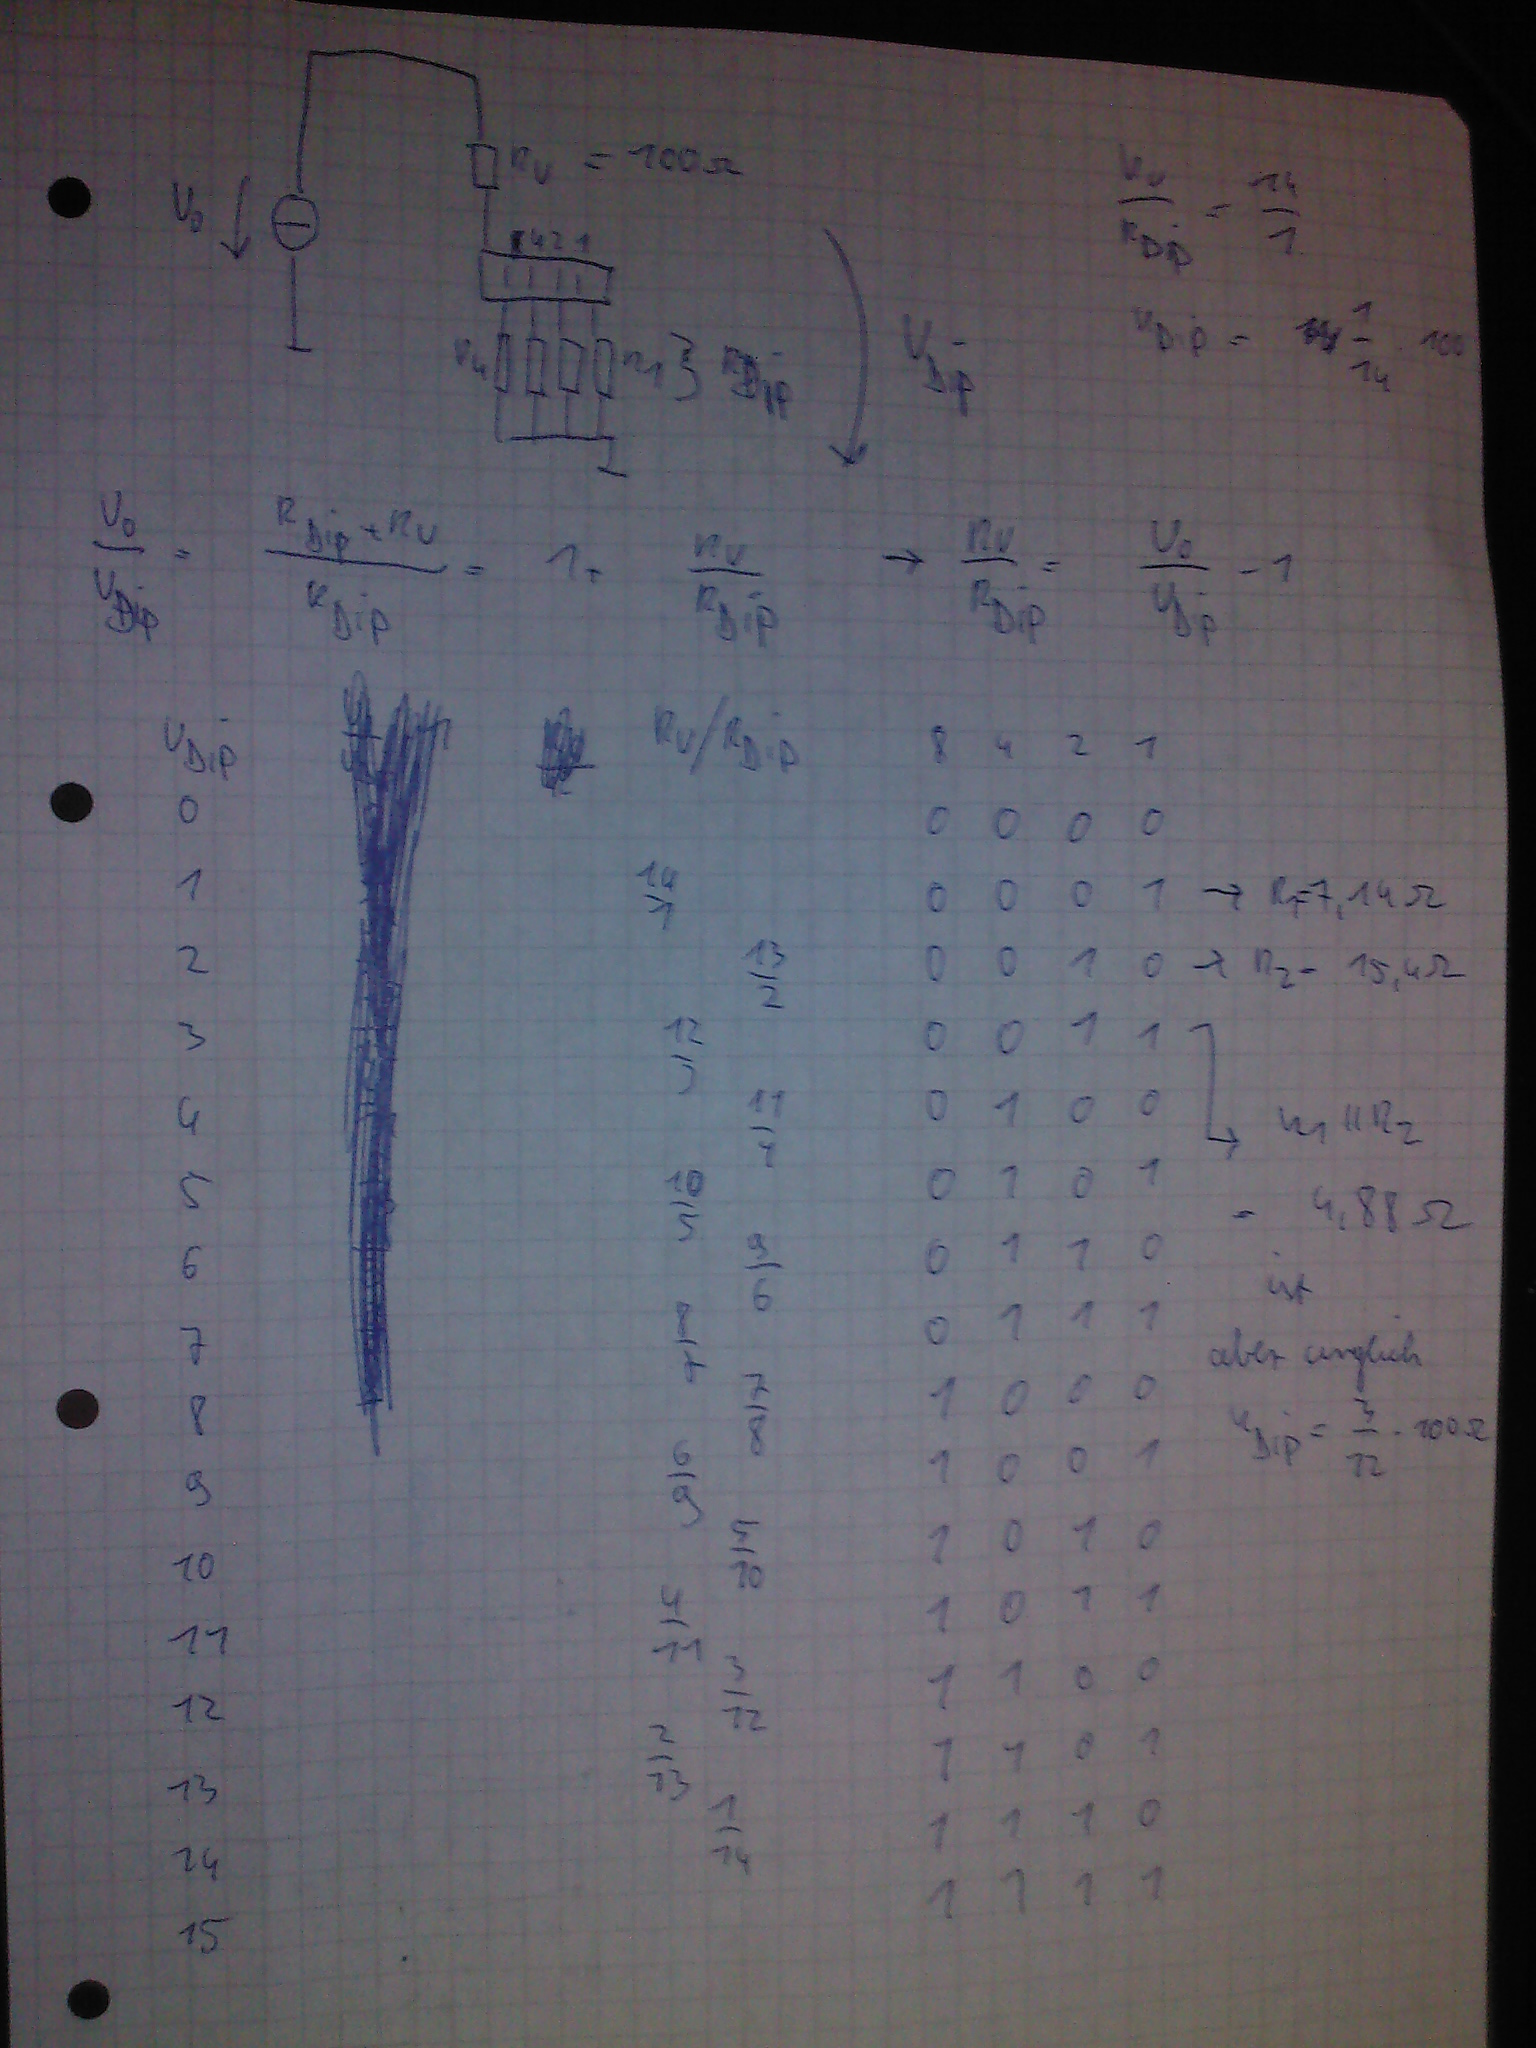 U₀
R_V = 100Ω
8 4 2 1
R₄ R₁ } R_Dip
U_Dip
R_V / R_Dip = 14/1
R_Dip = 1/14 · 100
U₀ / U_Dip = (R_Dip + R_V) / R_Dip = 1 + R_V / R_Dip → R_V / R_Dip = U₀ / U_Dip - 1
U_Dip R_V/R_Dip 8 4 2 1
0 0 0 0 0
1 14/1 0 0 0 1 → R₁=7,14Ω
2 13/2 0 0 1 0 → R₂= 15,4Ω
3 12/3 0 0 1 1 → R₁ || R₂
4 11/4 0 1 0 0
5 10/5 0 1 0 1 = 4,88Ω
6 9/6 0 1 1 0 ist
7 8/7 0 1 1 1 aber ungleich
8 7/8 1 0 0 0 R_Dip = 3/12 · 100Ω
9 6/9 1 0 0 1
10 5/10 1 0 1 0
11 4/11 1 0 1 1
12 3/12 1 1 0 0
13 2/13 1 1 0 1
14 1/14 1 1 1 0
15 1 1 1 1